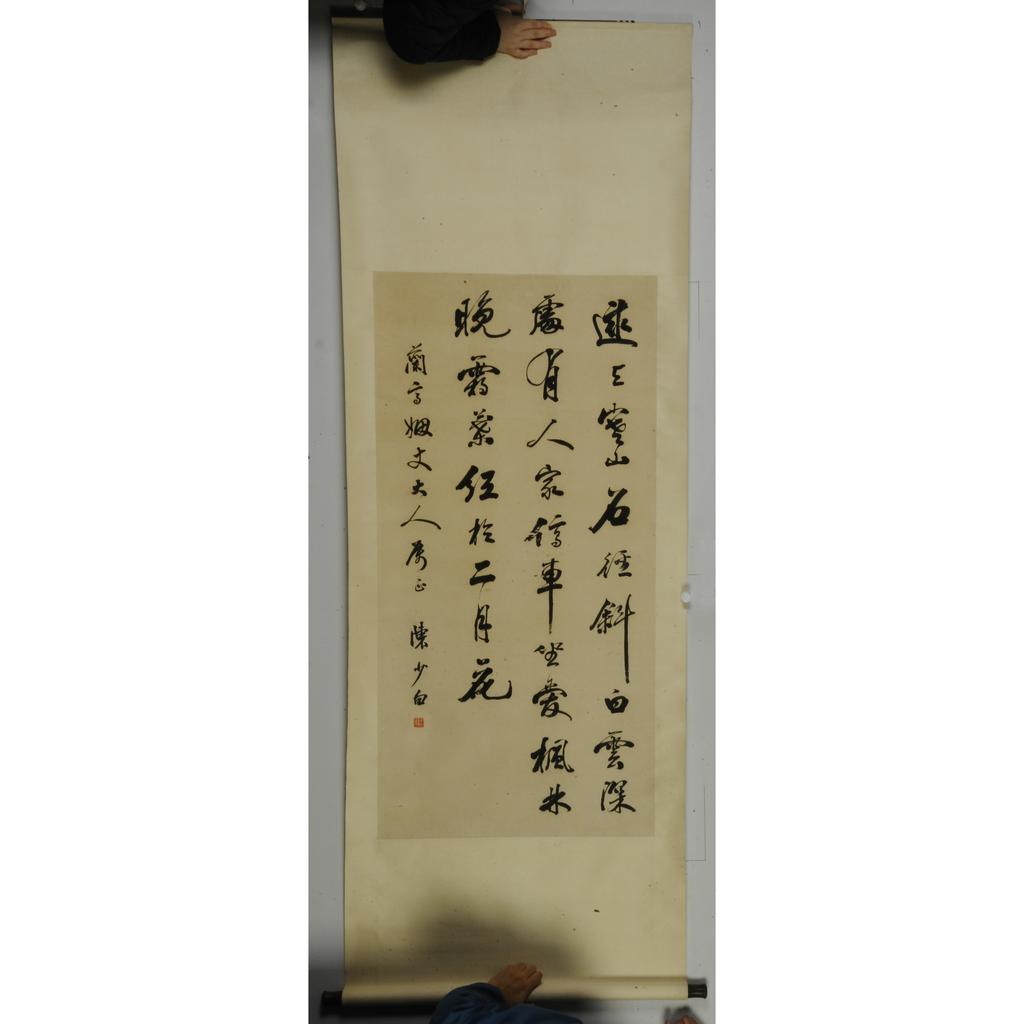 遠上寒山石徑斜白雲深
處有人家停車坐愛楓林
晚霜葉紅於二月花
蘭高姻丈大人屬正 陳少白